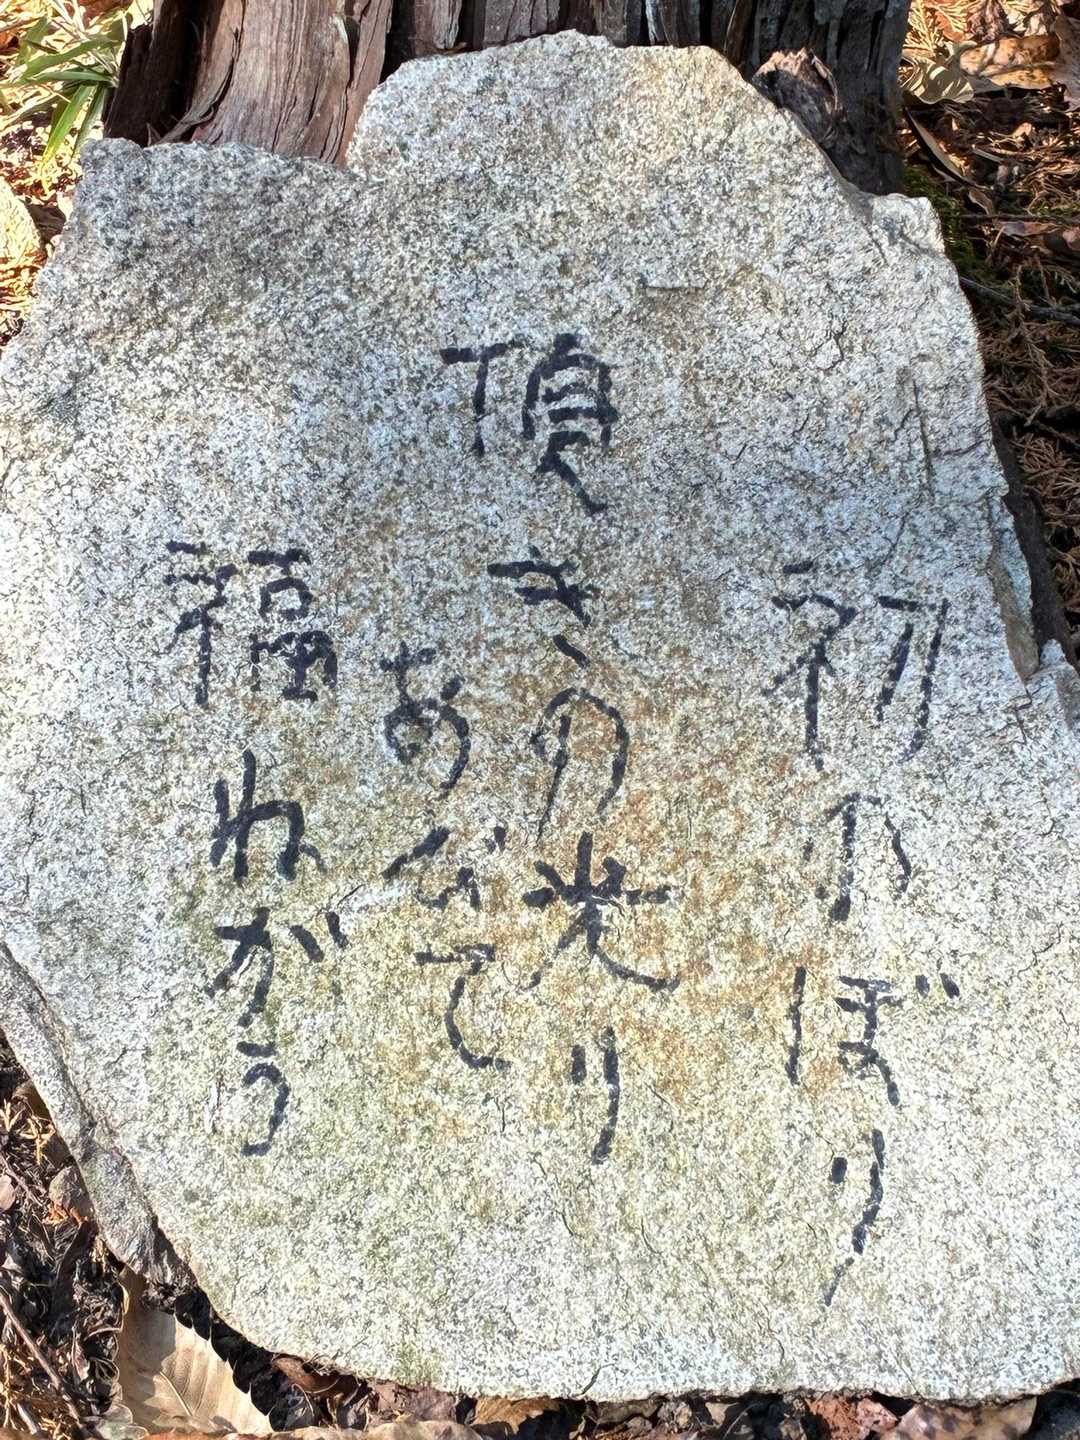 初のぼり
頂きの光り
あびて
福ねがう